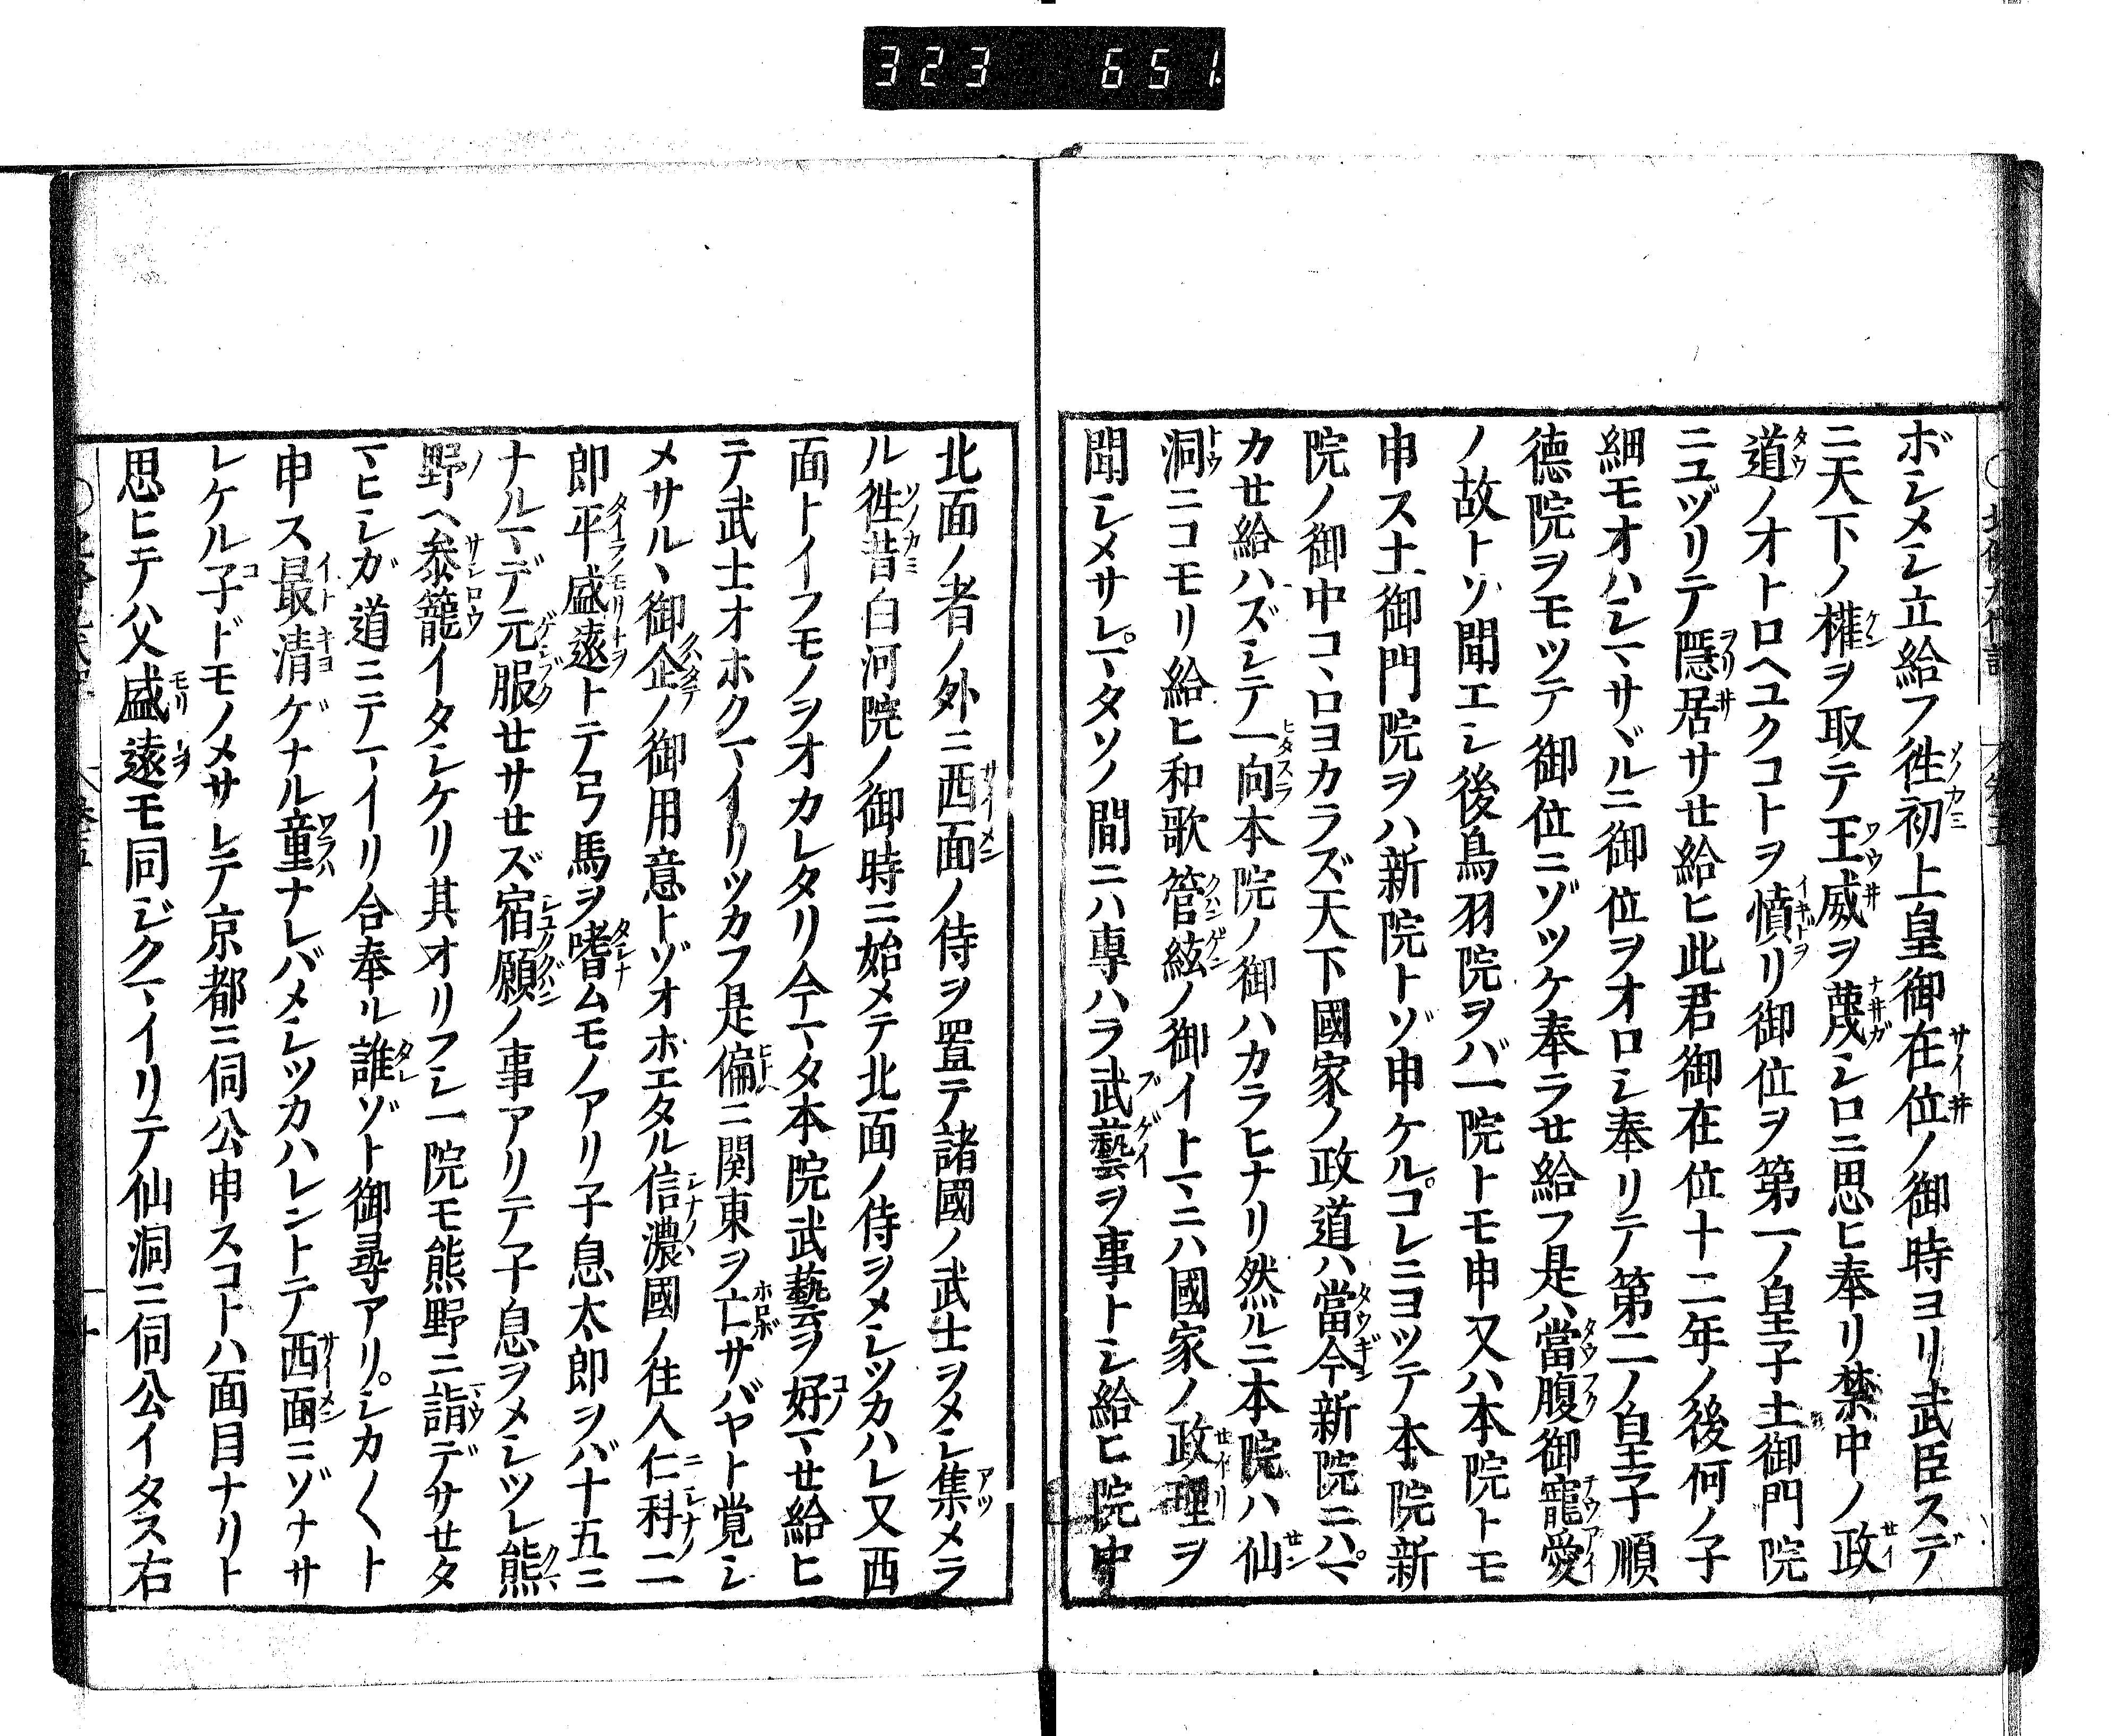 323 651
ボシメシ立給フ徃初上皇御在位ノ御時ヨリ武臣ステ
ニ天下ノ權ヲ取テ王威ヲ蔑シロニ思ヒ奉リ禁中ノ政
道ノオトロヘユクコトヲ憤リ御位ヲ第一ノ皇子土御門院
ニユヅリテ隱居サせ給ヒ此君御在位十二年ノ後何ノ子
細モオハシマサヾルニ御位ヲオロシ奉リテ第二ノ皇子順
德院ヲモツテ御位ニゾツケ奉ラせ給フ是ハ當腹御寵愛
ノ故トソ聞エシ後鳥羽院ヲバ一院トモ申又ハ本院トモ
申ス土御門院ヲハ新院トゾ申ケルコレニヨツテ本院新
院ノ御中コヽロヨカラズ天下國家ノ政道ハ當今新院ニハマ
カせ給ハズシテ一向本院ノ御ハカラヒナリ然ルニ本院ハ仙
洞ニコモリ給ヒ和歌管絃ノ御イトマニハ國家ノ政理ヲ
聞シメサレマタソノ間ニハ專ハラ武藝ヲ事トシ給ヒ院中
北面ノ者ノ外ニ西面ノ侍ヲ置テ諸國ノ武士ヲメシ集メラ
ル徃昔白河院ノ御時ニ始メテ北面ノ侍ヲメシツカハレ又西
面トイフモノヲオカレタリ今マタ本院武藝ヲ好マせ給ヒ
テ武士オホクマイリツカフ是偏ニ関東ヲ亡サバヤト覚シ
メサルヽ御企ノ御用意トゾオホエタル信濃國ノ住人仁科二
郎平盛遠トテ弓馬ヲ嗜ムモノアリ子息太郎ヲバ十五ニ
ナルマデ元服せサせズ宿願ノ事アリテ子息ヲメシツレ熊
野ヘ叅籠イタシケリ其オリフシ一院モ熊野ニ詣デサせタ
マヒシガ道ニテマイリ合奉ル誰ゾト御尋アリシカ〱ト
申ス最清ゲナル童ナレバメシツカハレントテ西面ニゾナサ
レケル子ドモノメサレテ京都ニ伺公申スコトハ面目ナリト
思ヒテハ父盛遠モ同ジクマイリテ仙洞ニ伺公イタス右